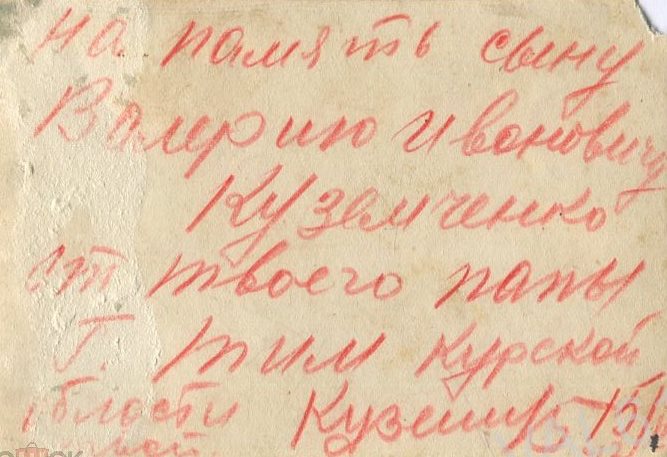 на память сыну
Валерию Ивановичу
Куземченко
от твоего папы
Г. Тим Курской
области